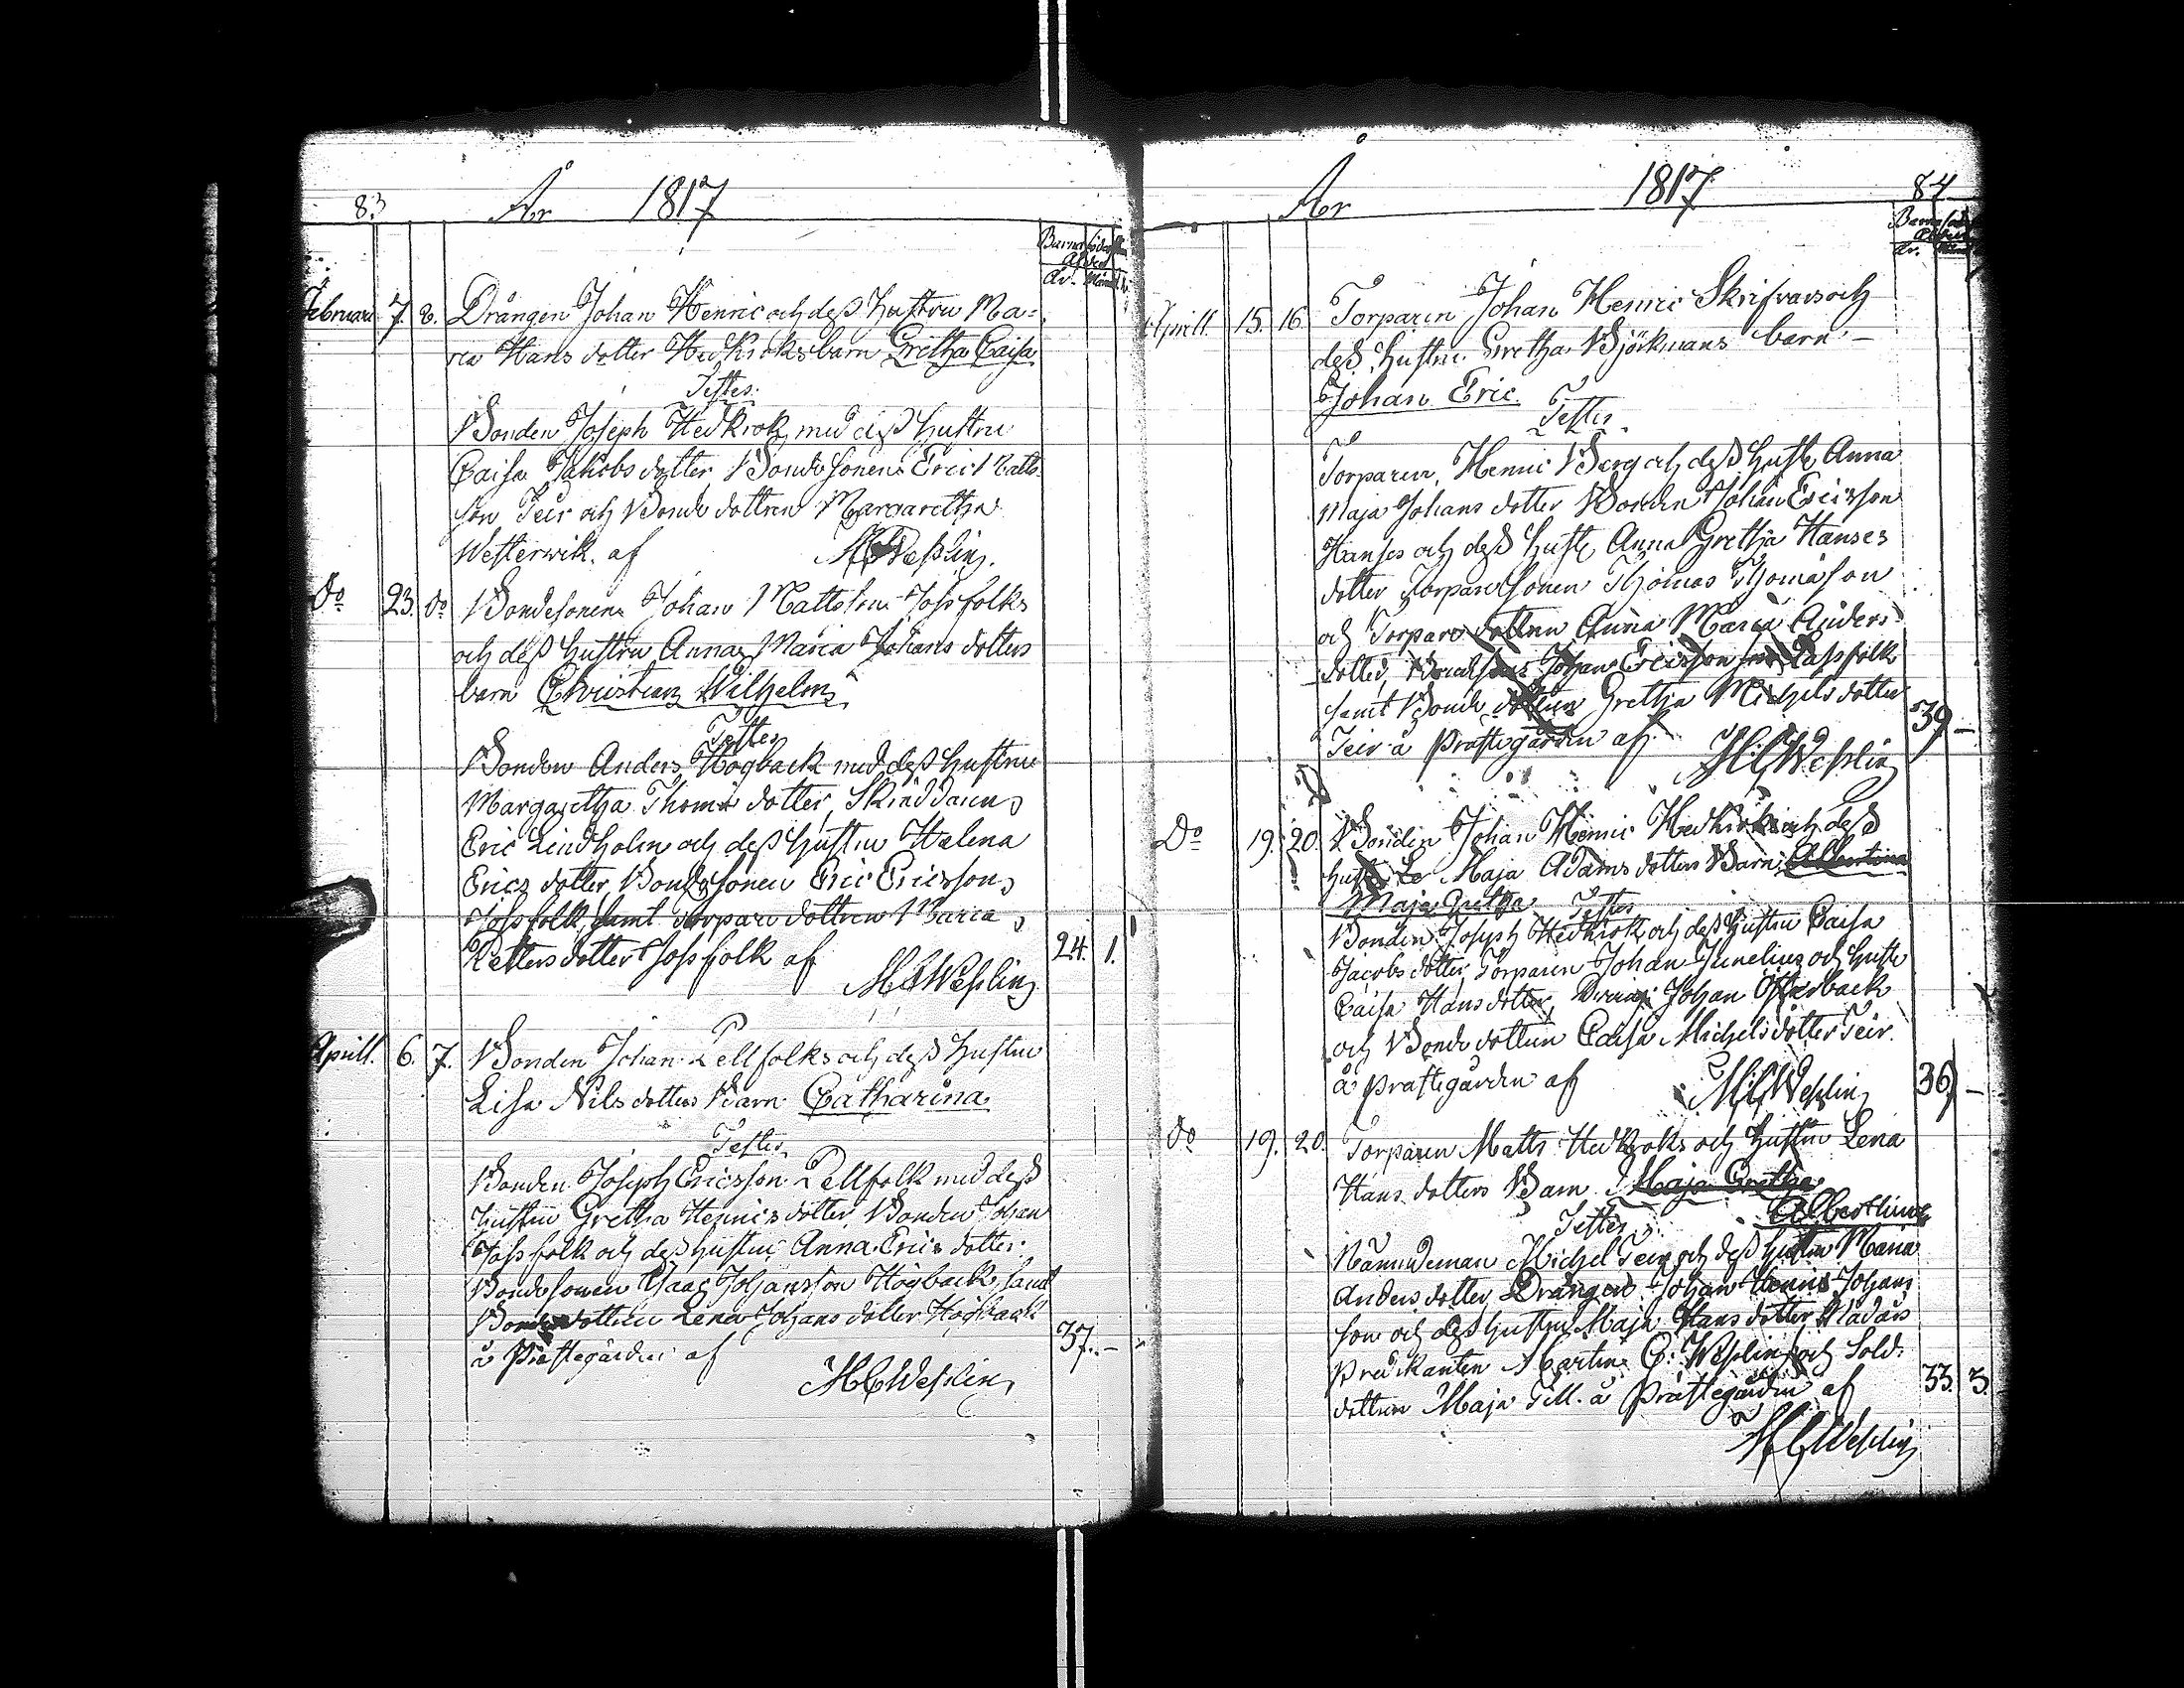 83
År 1817
Barnaföderskans
Ålder
År. Månad
Februari 7. 8. Drängen Johan Henric och deß hustru Ma=
ria Hans dotter Hedkroks barn Gretha Caisa
Testes.
Bonden Joseph Hedkrok med deß hustru
Caisa Jakobs dotter, Bondesonen Eric Matts
son Teir och Bonde dottren Margaretha
Westerwik. af MCWeßlin.
Do 23. do Bondesonen Johan Mattsson Jossfolks
och deß hustru Anna Maria Johans dotters
barn Christian Wilhelm
Testes
Bonden Anders Högback med deß hustru
Margaretha Thomæ dotter, Skinddaren
Eric Lindholm och deß hustru Helena
Erics dotter, Bondesonen Eric Ericsson
Jossfolk, samt torpare dottren Maria
Petters dotter Jossfolk af 24. 1.
MCWeßlin
Aprill. 6. 7. Bonden Johan Pellfolks och deß hustru
Lisa Nils dotters Barn Catharina
Testes
Bonden Joseph Ericsson Pellfolk med deß
hustru Gretha Henrics dotter, Bonden Johan
Jossfolk och deß hustru Anna Erics dotter.
Bondesonen Isaac Johansson Högback, samt
Bondedottren Lena Johans dotter Högback
å Prästegården af 37. –
MCWeßlin
År 1817 84
Barnaföderskans
Ålder
År.
Aprill. 15. 16. Torparen Johan Henric Skrifvars och
deß hustru Gretha Björkmans barn –
Johan Eric.
Testes
Torparen, Henric Berg och deß hust Anna
Maja Johans dotter Bonden Johan Ericsson
Hanses och deß hust Anna Gretha Hanses
dotter Torparesonen Thomas Thomasson
och Torpare dottren Anna Maria Anders
dotter, Bondesonen Johan Ericsson Passfolk
samt Bonde dottren Gretha Michels dotter 39 –
Teir å Prästegården af
MCWeßlin
Do 19. 20. Bonden Johan Henric Hedkroks och deß
hustru Le Maja Adams dotters Barn, Albertina
Maja Gretha Testes
Bonden Joseph Hedkrok och deß hustru Caisa
Jacobs dotter, Torparen Johan Junelius och hustr
Caisa Hans dotter, Dräng Johan Österback
och Bonde dottren Caisa Michelsdotter Teir.
å Prästegården af 36 –
MCWeßlin
do 19. 20. Torparen Matts Hedkroks och hustru Lena
Hans dotters Barn Maja Gretha
Albertina
Testes
Nämndeman Michel Teir och deß hustru Maria
Anders dotter, Drängen Johan Henric Johans
son och deß hustru Maja Hans dotter
Predikanten Martin C. Weßlin och Sold.
dottren Maja Till. å Prästegården af 33. 3.
MCWeßlin